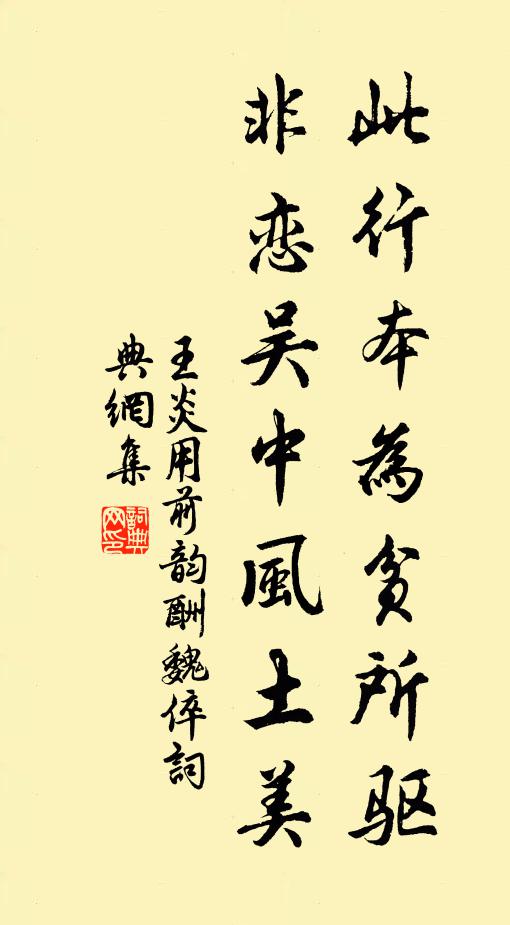 此行本為贫所驱
非恋吴中風土美
王炎用前韵酬魏倅詞
典網集
詞典
网印